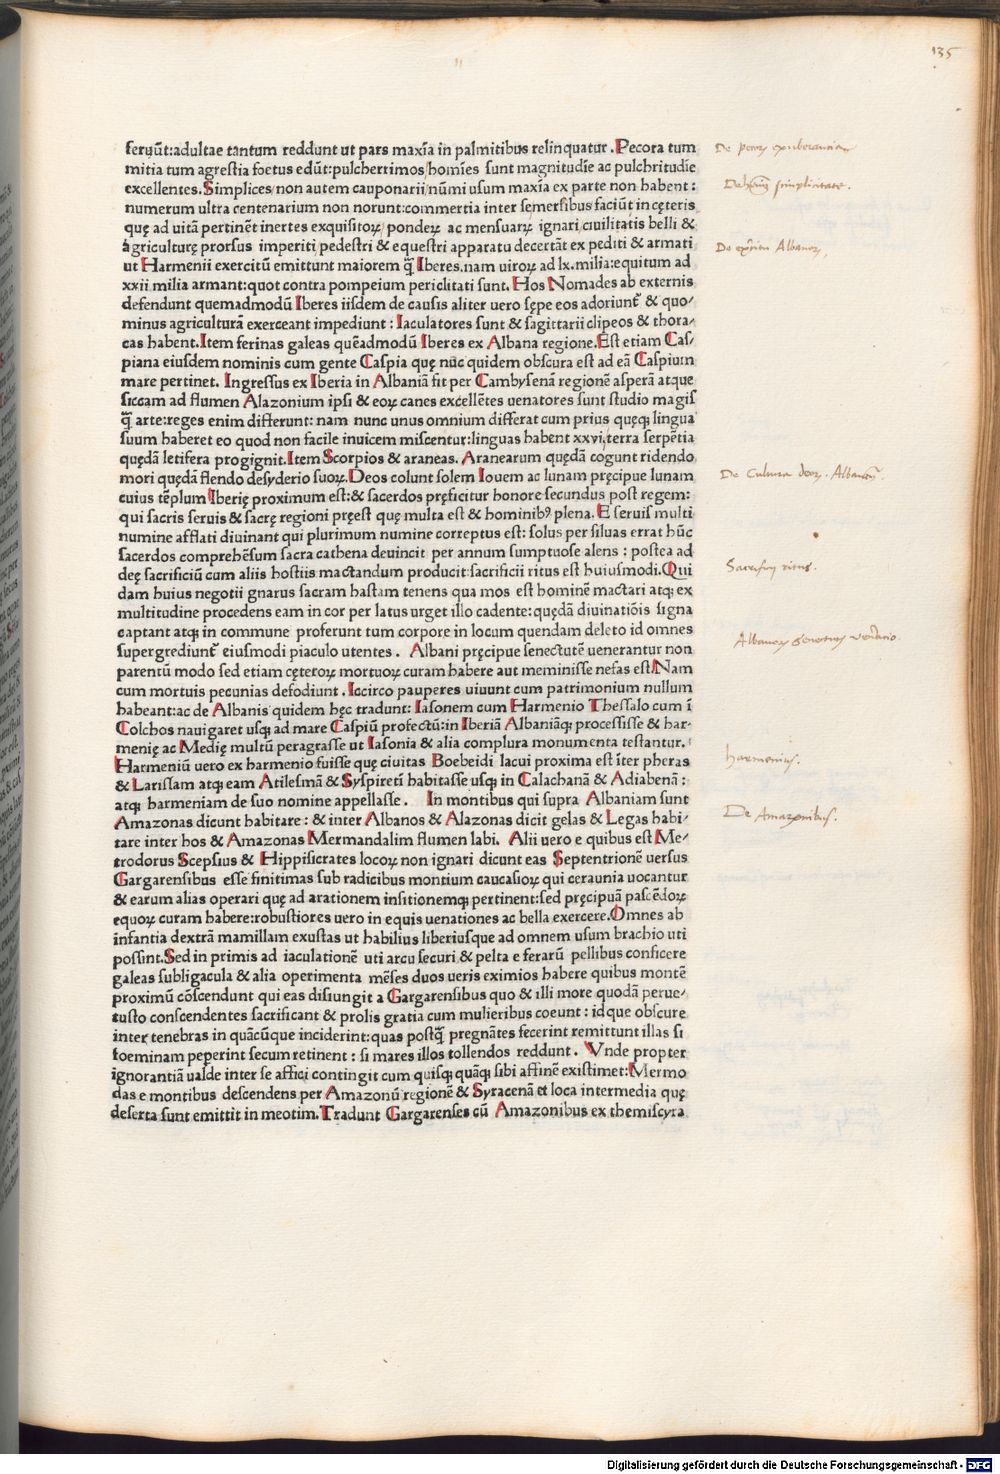 135
ferunt:adultae tantum reddunt ut pars maxĩa in palmitibus relinquatur. Pecora tum
mitia tum agrestia foetus edũt:pulcherrimos/homĩes sunt magnitudĩe ac pulchritudĩe
excellentes. Simplices/non autem cauponarii/nũmi usum maxĩa ex parte non habent:
numerum ultra centenarium non norunt:commertia inter semersibus faciũt in cęteris
quę ad uitã pertinẽt inertes exquisitoꝝ/ pondeꝝ ac mensuaꝝ ignari/ciuilitatis belli &
agriculturę prorsus imperiti/pedestri & equestri apparatu decertãt ex pediti & armati
ut Harmenii exercitũ emittunt maiorem q̃ Iberes.nam uiroꝝ ad lx.milia:equitum ad
xxii milia armant:quot contra pompeium periclitati sunt. Hos Nomades ab externis
defendunt quemadmodũ Iberes iisdem de causis aliter uero sępe eos adoriunt̃ & quo/
minus agriculturã exerceant impediunt : Iaculatores sunt & sagittarii clipeos & thora/
cas habent. Item ferinas galeas quẽadmodũ Iberes ex Albana regione. Est etiam Cas/
piana eiusdem nominis cum gente Caspia quę nũc quidem obscura est ad eã Caspium
mare pertinet. Ingressus ex Iberia in Albaniã fit per Cambysenã regionẽ asperã atque
siccam ad flumen Alazonium ipsi & eoꝝ canes excellẽtes uenatores sunt studio magis
q̃ arte:reges enim differunt: nam nunc unus omnium differat cum prius quęq; lingua
suum haberet eo quod non facile inuicem miscentur:linguas habent xxvi,terra serpẽtia
quędã letifera progignit. Item Scorpios & araneas. Aranearum quędã cogunt ridendo
mori quędã flendo desyderio suoꝝ. Deos colunt solem Iouem ac lunam pręcipue lunam
cuius tẽplum Iberię proximum est:& sacerdos pręficitur honore secundus post regem:
qui sacris seruis & sacrę regioni pręest quę multa est & hominibꝰ plena. E seruis multi
numine afflati diuinant qui plurimum numine correptus est: solus per siluas errat hũc
sacerdos comprehẽsum sacra cathena deuincit per annum sumptuose alens : postea ad
deę sacrificiũ cum aliis hostiis mactandum producit:sacrificii ritus est huiusmodi. Qui
dam huius negotii gnarus sacram hastam tenens qua mos est hominẽ mactari atq; ex
multitudine procedens eam in cor per latus urget illo cadente:quędã diuinatiõis signa
captant atq; in commune proferunt tum corpore in locum quendam deleto id omnes
supergrediunt̃ eiusmodi piaculo utentes . Albani pręcipue senectutẽ uenerantur non
parentũ modo sed etiam cęteroꝝ mortuoꝝ curam habere aut meminisse nefas est Nam
cum mortuis pecunias defodiunt . Iccirco pauperes uiuunt cum patrimonium nullum
habeant:ac de Albanis quidem hęc tradunt: Iasonem cum Harmenio Thessalo cum ĩ
Colchos nauigaret usq; ad mare Caspiũ profectũ:in Iberiã Albaniãq; processisse & har/
menię ac Medię multũ peragrasse ut Iasonia & alia complura monumenta testantur.
Harmeniũ uero ex harmenio fuisse quę ciuitas Boebeidi lacui proxima est iter pheras
& Larissam atq; eam Atilesmã & Syspiretũ habitasse usq; in Calachanã & Adiabenã :
atq; harmeniam de suo nomine appellasse . In montibus qui supra Albaniam sunt
Amazonas dicunt habitare : & inter Albanos & Alazonas dicit gelas & Legas habi/
tare inter hos & Amazonas Mermandalim flumen labi. Alii uero e quibus est Me/
trodorus Scepsius & Hippisicrates locoꝝ non ignari dicunt eas Septentrionẽ uersus
Gargarensibus esse finitimas sub radicibus montium caucasioꝝ qui ceraunia uocantur
& earum alias operari quę ad arationem insitionemq; pertinent:sed pręcipuã pascẽdoꝝ
equoꝝ curam habere:robustiores uero in equis uenationes ac bella exercere. Omnes ab
infantia dextrã mamillam exustas ut habilius liberiusque ad omnem usum brachio uti
possint. Sed in primis ad iaculationẽ uti arcu securi & pelta e ferarũ pellibus conficere
galeas subligacula & alia operimenta mẽses duos ueris eximios habere quibus montẽ
proximũ cõscendunt qui eas disiungit a Gargarensibus quo & illi more quodã perue/
tusto conscendentes sacrificant & prolis gratia cum mulieribus coeunt : idque obscure
inter tenebras in quãcũque inciderint:quas postq̃ pregnãtes fecerint remittunt illas si
foeminam peperint secum retinent : si mares illos tollendos reddunt . Vnde propter
ignorantiã ualde inter se affici contingit cum quisq; quãq; sibi affinẽ existimet: Mermo
das e montibus descendens per Amazonũ regionẽ & Syracenã et loca intermedia quę
deserta sunt emittit in meotim. Tradunt Gargarenses cũ Amazonibus ex themiscyra
De pecoꝝ exuberantia
De hoĩum simplicitate.
De exercitu Albanoꝝ,
De Cultura deoꝝ. Albanoꝝ.
Sacrificij ritus.
Albanoꝝ senectutis veneratio.
harmenius.
De Amazonibus.
Digitalisierung gefördert durch die Deutsche Forschungsgemeinschaft - DFG